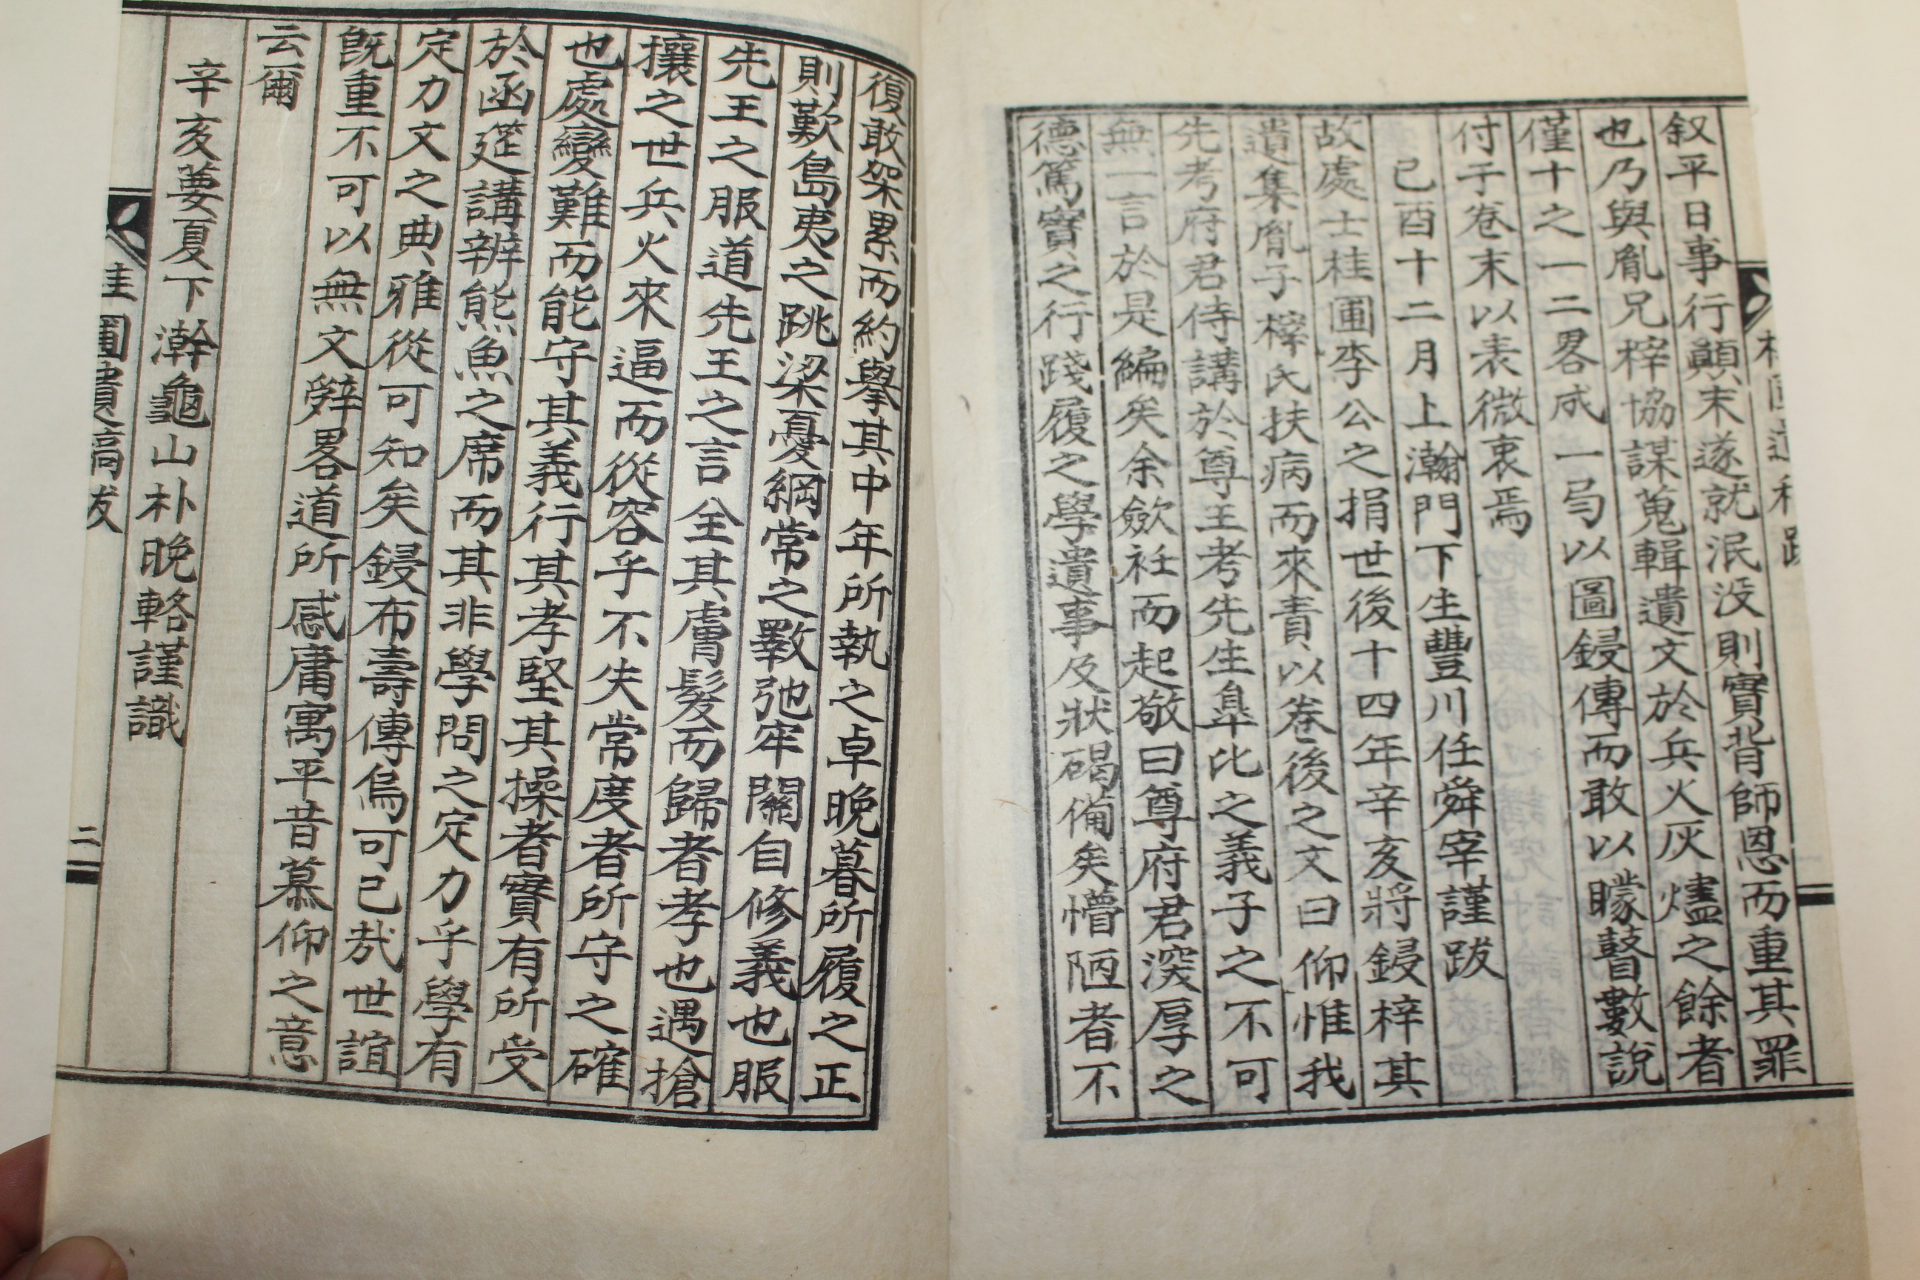 叙平日事行顚末遂就泯没則實背師恩而重其罪
也乃與胤兄梓協謀蒐輯遺文於兵火灰燼之餘者
僅十之一二畧成一㢧以圖鋟傳而敢以矇瞽數說
付于卷末以表微衷焉
己酉十二月上瀚門下生豐川任舜宰謹跋
故處士桂圃李公之捐世後十四年辛亥將鋟梓其
遺集胤子梓氏扶病而來責以卷後之文曰仰惟我
先考府君侍講於尊王考先生皐比之義子之不可
無一言於是編矣余歛衽而起敬曰尊府君深厚之
德篤實之行踐履之學遺事及狀碣備矣懵陋者不
復敢架累而約擧其中年所執之卓晩暮所履之正
則歎島夷之跳梁憂綱常之斁弛牢關自修義也服
先王之服道先王之言全其膚髮而歸者孝也遇搶
攘之世兵火來逼而從容乎不失常度者所守之確
也處變難而能守其義行其孝堅其操者實有所受
於函筵講辨熊魚之席而其非學問之定力乎學有
定力文之典雅從可知矣鋟布壽傳烏可已哉世誼
旣重不可以無文辭畧道所感庸寓平昔慕仰之意
云爾
辛亥蔞夏下澣龜山朴晩輅謹識
桂圃遺稿跋
二